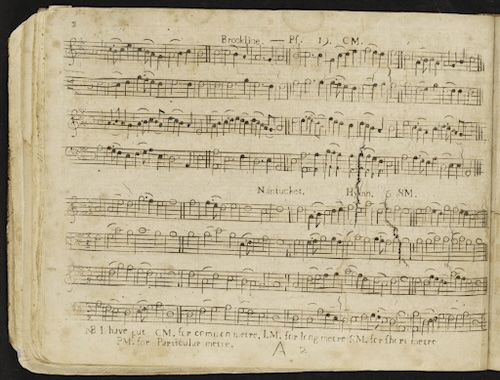 2
Brookline. — Ps. 19. CM.
Nantucket. Hymn. 6 SM.
NB I have put CM. for common metre, LM. for long metre SM. for short metre
PM. for Particular metre.
A 2